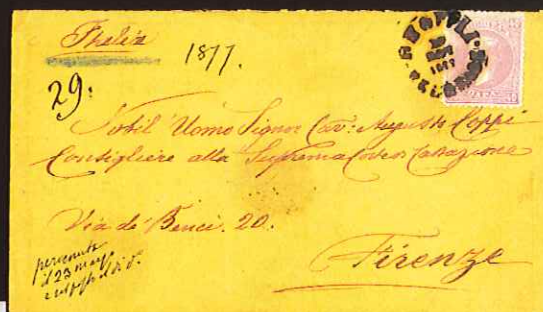 Italia
1877.
29:
Nobil Uomo Signor Cav: Augusto Coppi
Consigliere alla Suprema Corte Cassazione
Via de' Benci. 20.
Firenze
pervenuta
il 23